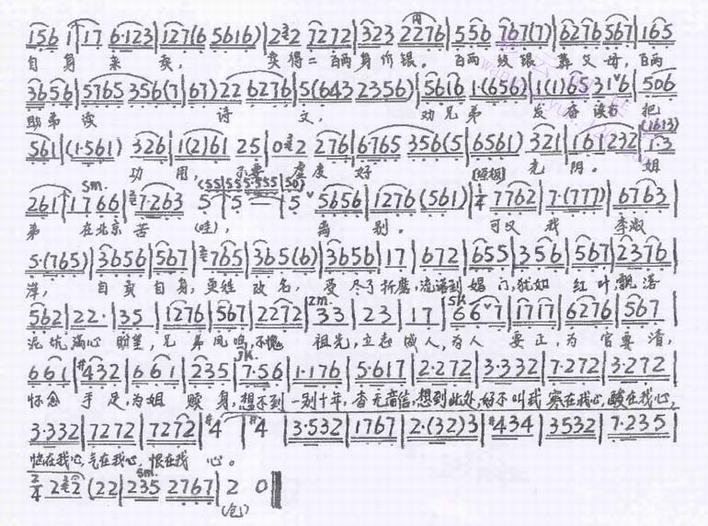 156 1|17 6·123|127(6 5616)|2 3/4 2 7272|323 2276|556 767(7)|6276 567|165
自身 亲卖, 卖得二百两身价银。百两纹银葬父母,百两
3656|5765 356(7|67)22 6276|5(643 2356)|5616 1·(656)|1(1)65 31 6|506
助弟读 诗 文, 劝兄弟 发奋读书 把
561|(1·561) 326|1(2)61 25|0 3/4 2 276|6765 356(5|6561) 321|161232|1·3 (1613)
功用, 不要 虚度好 光阴。 姐
261|1766|7·263 5|5|5 5656|1276 (561)|1/4 7762|7·(777)|6763
弟 在北京苦 (哇), 离别。 可叹我李淑
5·(765)|3656|567|765|365(6)|3656|17|672|655|356|567|2376
萍, 自卖自身,更姓改名, 受尽了折磨,流落到娼门,犹如红叶飘落
562|22·|35|1276|567|2272|33|23|17|667|1717|6276|567
泥坑,满心盼望,兄弟凤鸣,不愧 祖先,立志成人,为人要正,为官要清,
661|#432|661|235|7·56|1·176|5·617|2·272|3·332|7·272|3·272
怀念手足,为姐赎身,想不到一别十年,杳无音信,想到此处,好不叫我寒在我心,酸在我心,
3·332|7272|7272|#4|#4|3·532|1767|2·(32)3|#434|3532|7·235|
恼在我心,气在我心,恨在我 心。
2/4 2 3/4 2 (22|235 2767|2 0‖
(仓)